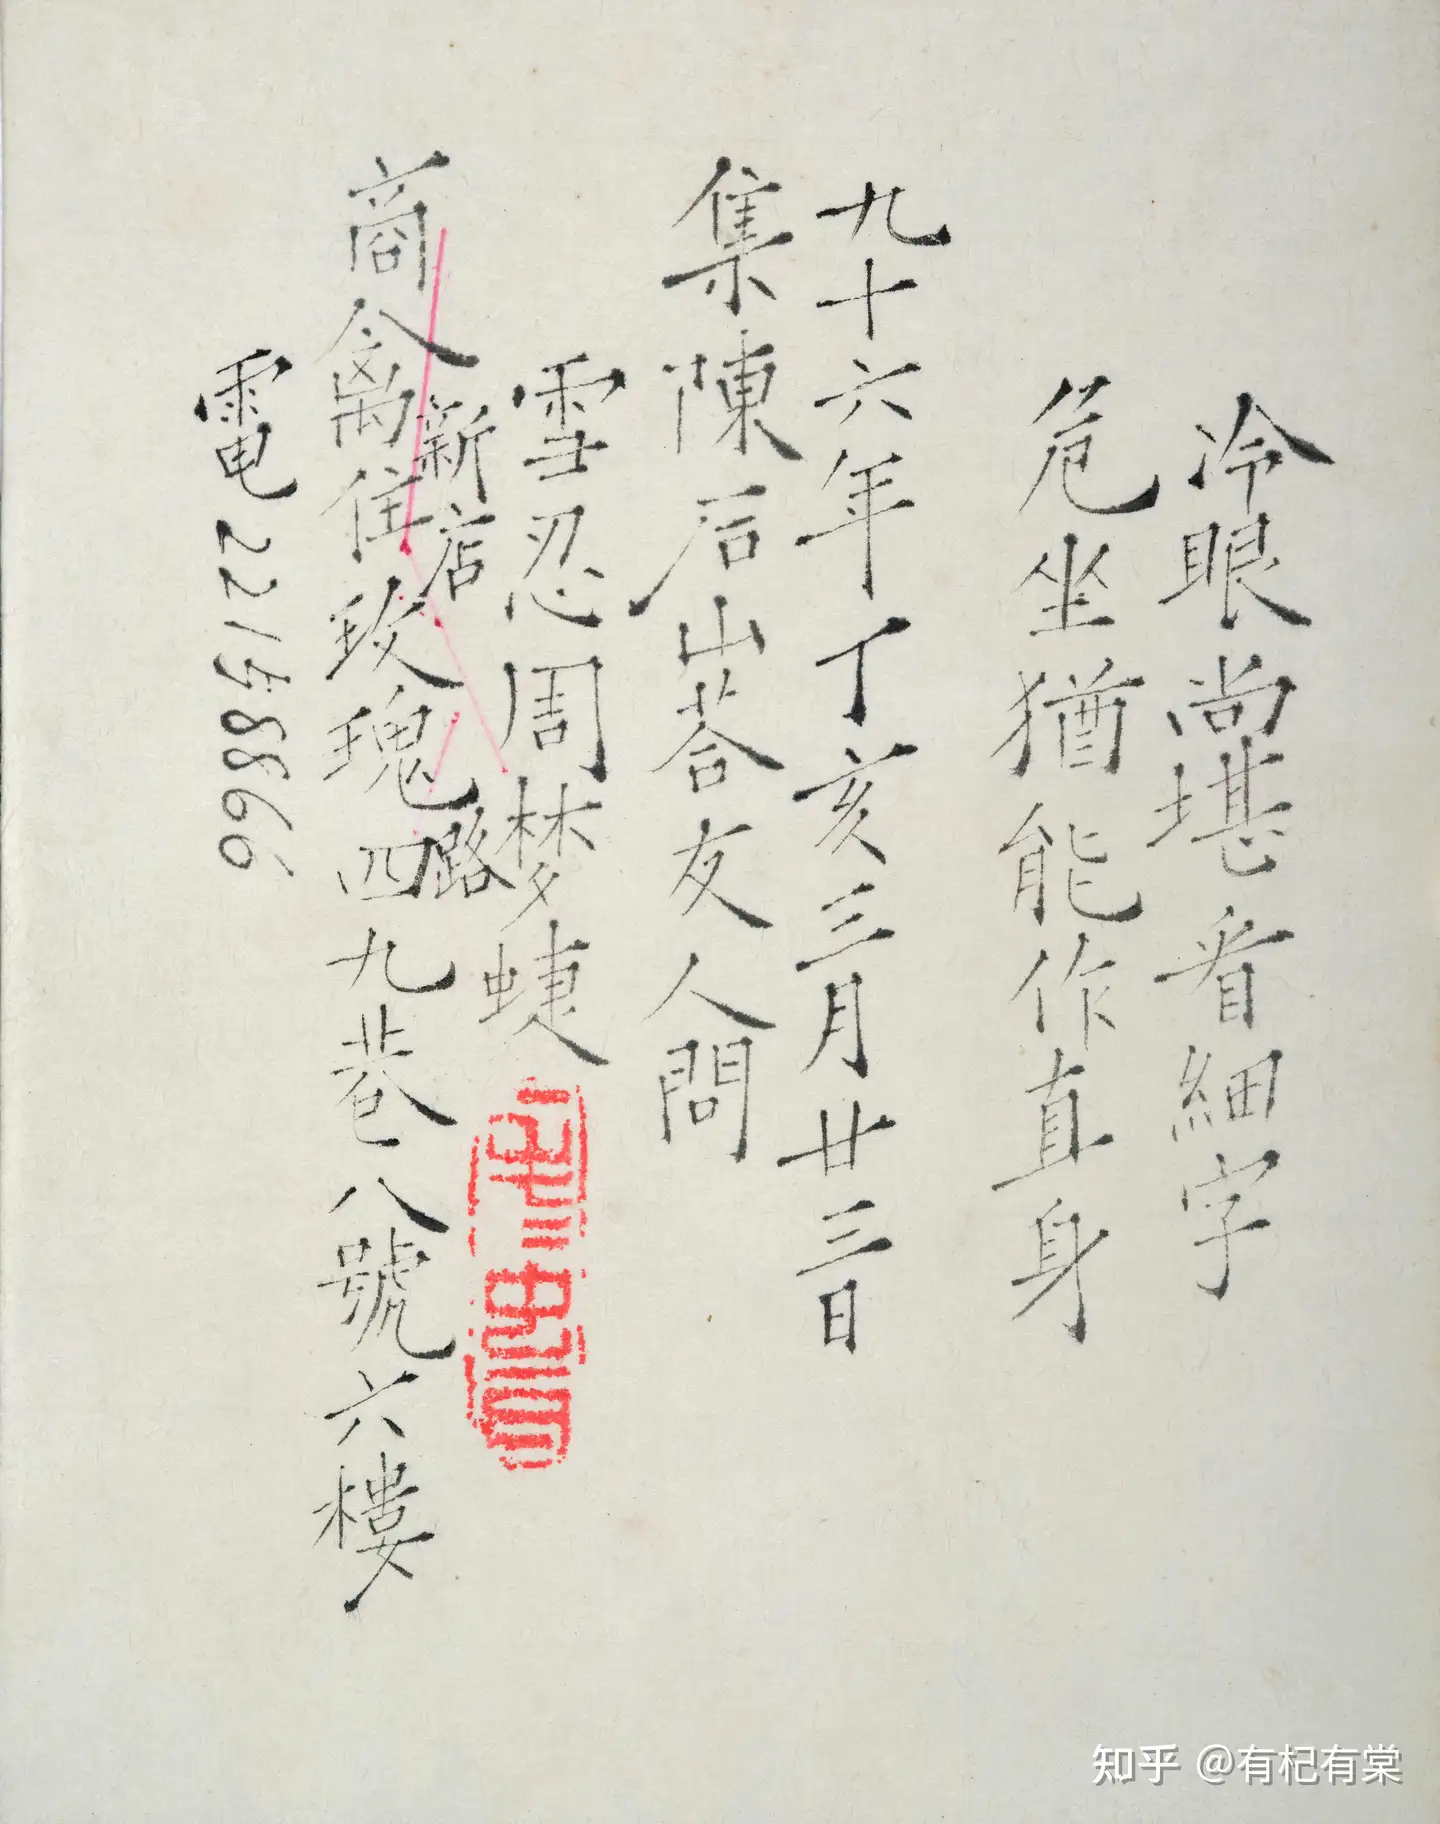 冷眼尚堪看細字
危坐猶能作直身
九十六年丁亥三月廿三日
集陳后山荅友人問
雲忍周梦蜨
商禽住玫瑰四九巷八號六樓
新店
路
電22158866
知乎 @有杞有棠